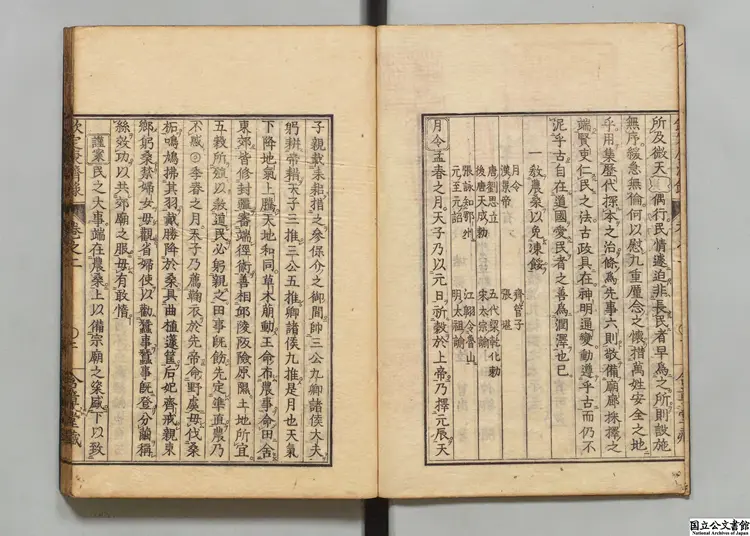 所及微天　偶行民情遽迫非長民者早為之所則設施
無序緩急無倫何以慰九重厪念之懷措萬姓安全之地
乎用集歷代探本之治條為先事六則敬備廟廊採擇之
端賢吏仁民之法古政具在神明通變動遵乎古而仍不
泥乎古自在道國愛民者之善為潤澤也已
一敎農桑以免凍餒
月令　齊管子
漢景帝　張堪
唐劉思立　五代梁乾化勅
後唐天成勅　宋太宗諭
張詠知鄂州　江翱令魯山
元至元詔　明太祖諭
月令孟春之月天子乃以元日祈穀於上帝乃擇元辰天
子親載耒耜措之參保介之御閒帥三公九卿諸侯大夫
躬耕帝耤天子三推三公五推卿諸侯九推是月也天氣
下降地氣上騰天地和同草木萌動王命布農事命田舍
東郊皆修封疆審端徑術善相邱陵阪險原隰土地所宜
五穀所殖以敎道民必躬親之田事旣飭先定準直農乃
不惑○季春之月天子乃薦鞠衣於先帝命野虞毋伐桑
柘鳴鳩拂其羽戴勝降於桑具曲植籧筐后妃齊戒親東
鄉躬桑禁婦女毋觀省婦使以勸蠶事蠶事旣登分繭稱
絲效功以共郊廟之服毋有敢惰
謹案民之大事端在農桑上以備宗廟之粢盛下以致
欽定康濟錄
卷之二
國立公文書館
National Archives of Japan